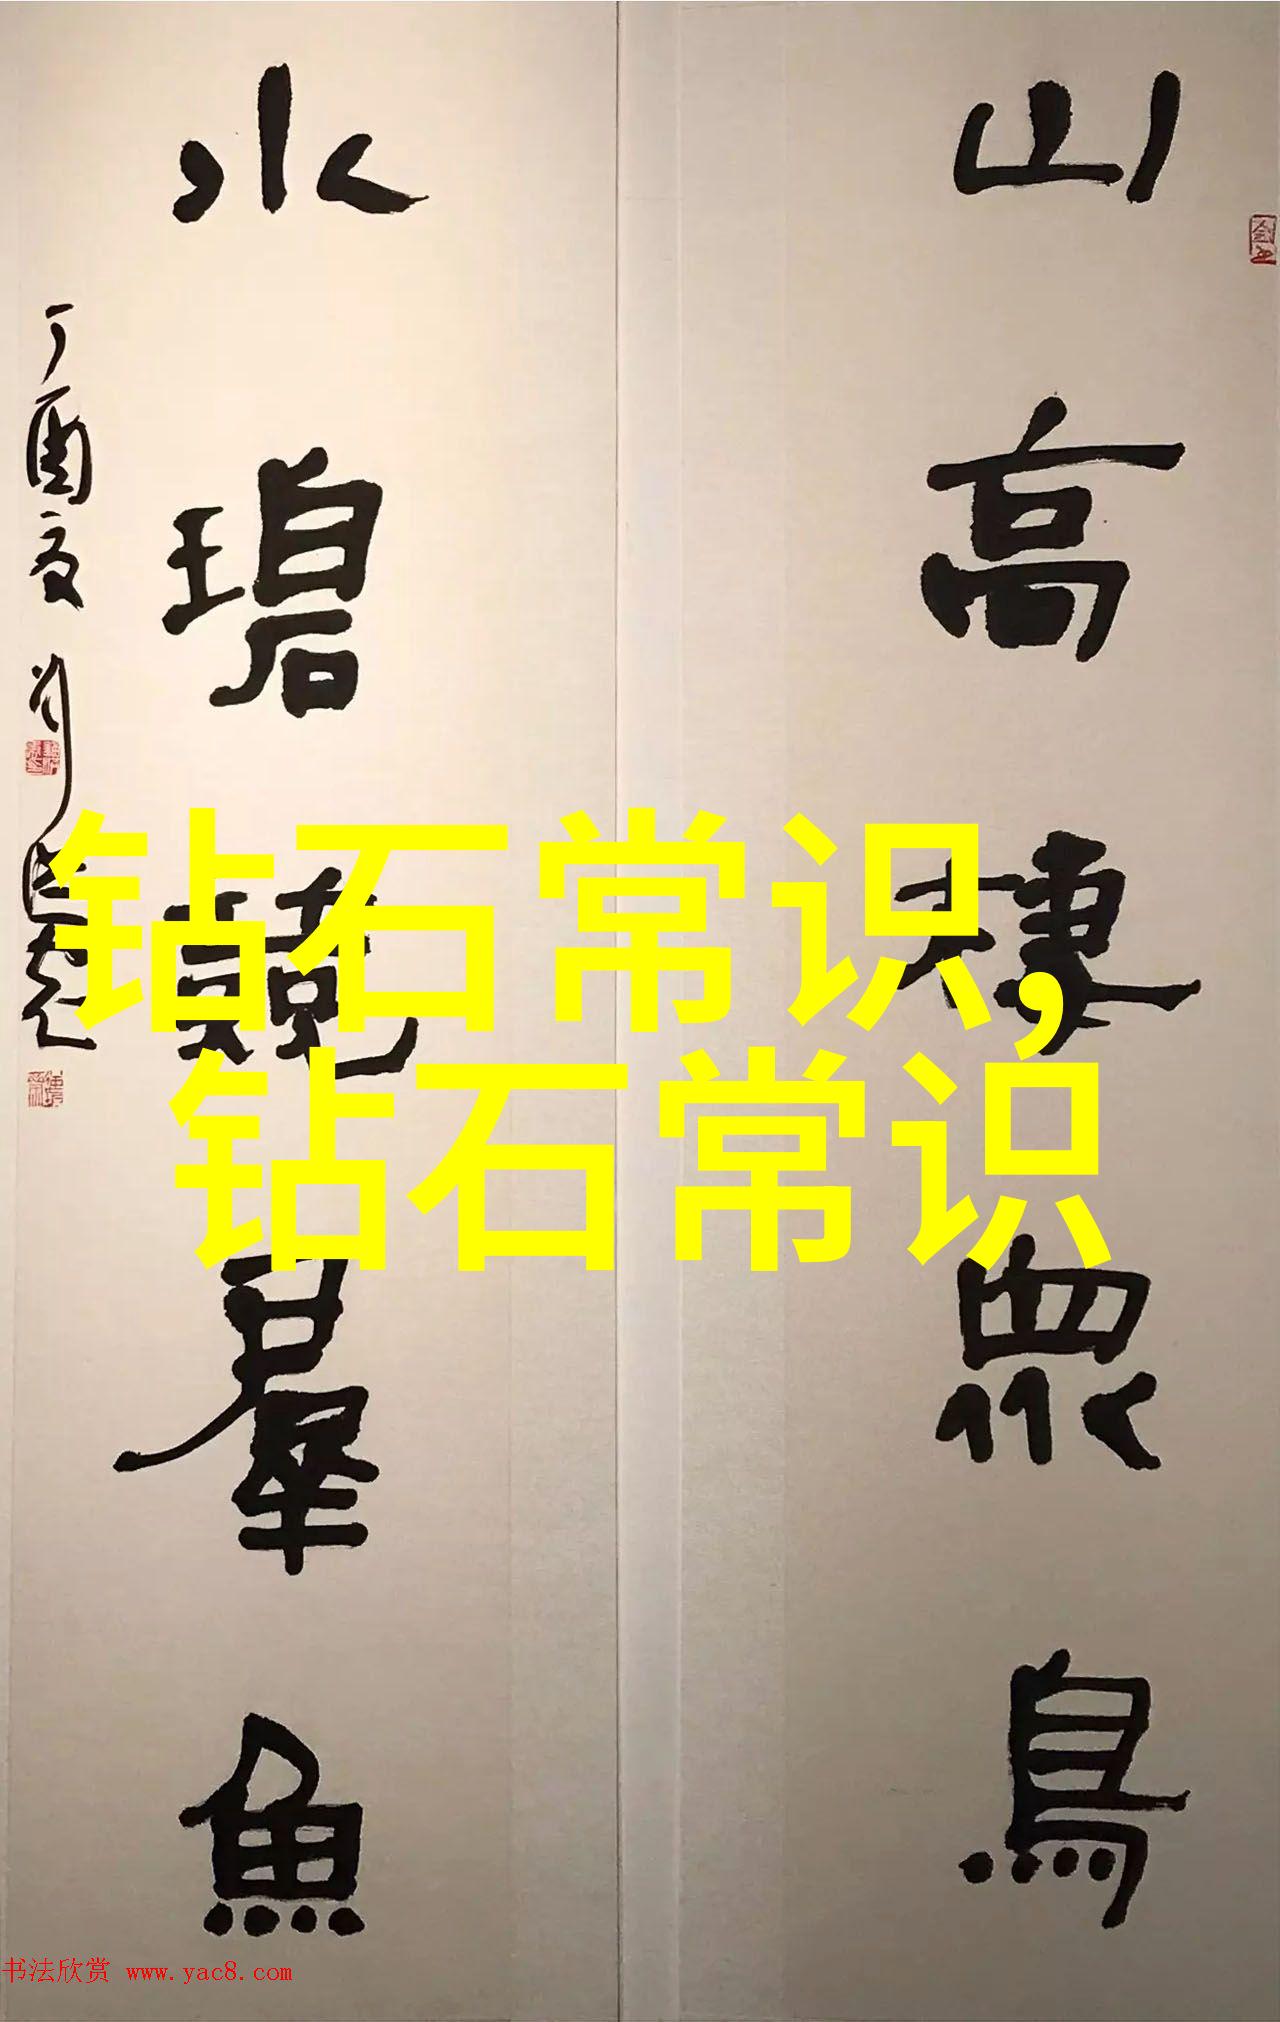 山高棲眾鳥
水碧競羣魚
丁酉夏 刘
钻石常识,
钻石常识
书法欣赏 www.yac8.com